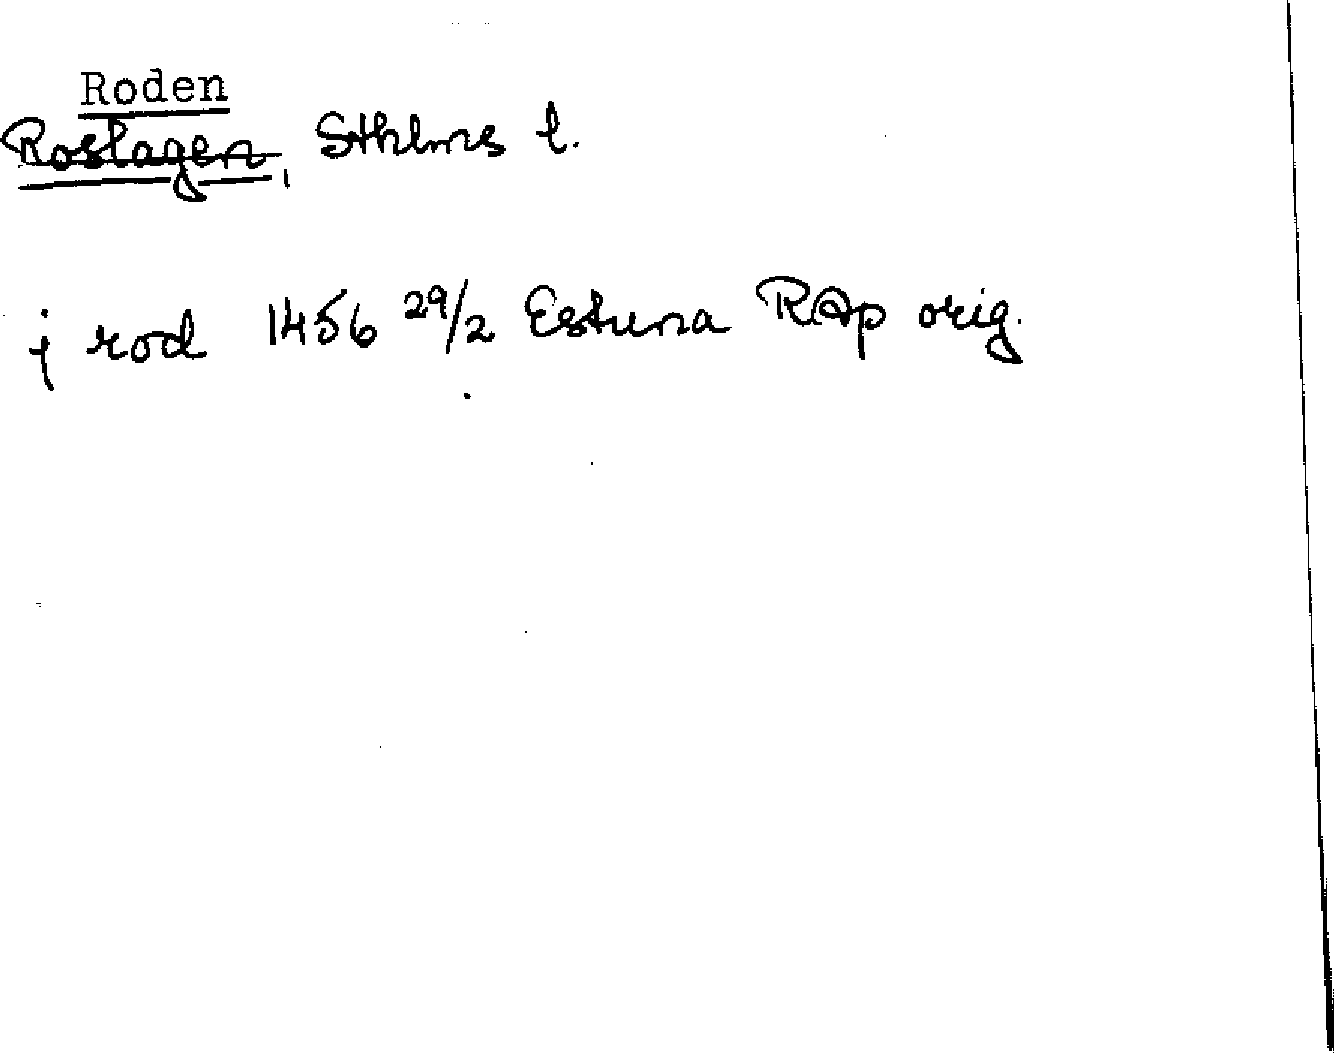 Roden
Roslagen, Sthlms l.
j rod 1456 29/2 Estuna RAp orig.